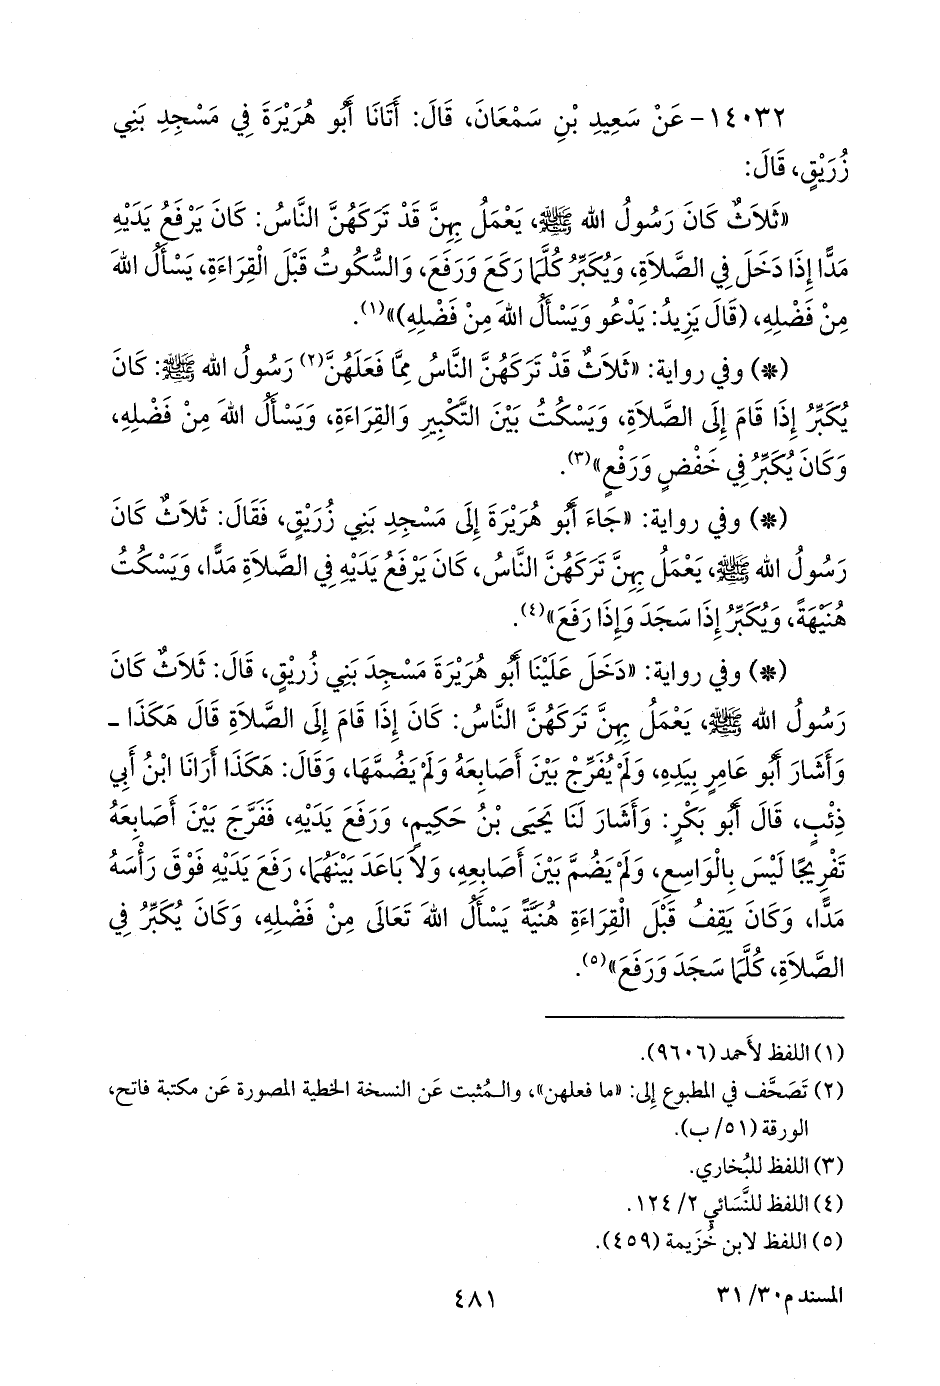 ١٤٠٣٢- عَنْ سَعِيدِ بْنِ سَمْعَانَ، قَالَ: أَتَانَا أَبُو هُرَيْرَةَ فِي مَسْجِدِ بَنِي
زُرَيْقٍ، قَالَ:
«ثَلَاثٌ كَانَ رَسُولُ الله ﷺ، يَعْمَلُ بِهِنَّ قَدْ تَرَكَهُنَّ النَّاسُ: كَانَ يَرْفَعُ يَدَيْهِ
مَدًّا إِذَا دَخَلَ فِي الصَّلَاةِ، وَيُكَبِّرُ كُلَّمَا رَكَعَ وَرَفَعَ، وَالسُّكُوتُ قَبْلَ الْقِرَاءَةِ، يَسْأَلُ اللهَ
مِنْ فَضْلِهِ، (قَالَ يَزِيدُ: يَدْعُو وَيَسْأَلُ اللهَ مِنْ فَضْلِهِ)»(١).
(*) وفي رواية: «ثَلَاثٌ قَدْ تَرَكَهُنَّ النَّاسُ مِمَّا فَعَلَهُنَّ(٢) رَسُولُ الله ﷺ: كَانَ
يُكَبِّرُ إِذَا قَامَ إِلَى الصَّلَاةِ، وَيَسْكُتُ بَيْنَ التَّكْبِيرِ وَالقِرَاءَةِ، وَيَسْأَلُ اللهَ مِنْ فَضْلِهِ،
وَكَانَ يُكَبِّرُ فِي خَفْضٍ وَرَفْعٍ»(٣).
(*) وفي رواية: «جَاءَ أَبُو هُرَيْرَةَ إِلَى مَسْجِدِ بَنِي زُرَيْقٍ، فَقَالَ: ثَلَاثٌ كَانَ
رَسُولُ الله ﷺ، يَعْمَلُ بِهِنَّ تَرَكَهُنَّ النَّاسُ، كَانَ يَرْفَعُ يَدَيْهِ فِي الصَّلَاةِ مَدًّا، وَيَسْكُتُ
هُنَيْهَةً، وَيُكَبِّرُ إِذَا سَجَدَ وَإِذَا رَفَعَ»(٤).
(*) وفي رواية: «دَخَلَ عَلَيْنَا أَبُو هُرَيْرَةَ مَسْجِدَ بَنِي زُرَيْقٍ، قَالَ: ثَلَاثٌ كَانَ
رَسُولُ الله ﷺ، يَعْمَلُ بِهِنَّ تَرَكَهُنَّ النَّاسُ: كَانَ إِذَا قَامَ إِلَى الصَّلَاةِ قَالَ هَكَذَا ـ
وَأَشَارَ أَبُو عَامِرٍ بِيَدِهِ، وَلَمْ يُفَرِّجْ بَيْنَ أَصَابِعَهُ وَلَمْ يَضُمَّهَا، وَقَالَ: هَكَذَا أَرَانَا ابْنُ أَبِي
ذِئْبٍ، قَالَ أَبُو بَكْرٍ: وَأَشَارَ لَنَا يَحيَى بْنُ حَكِيمٍ، وَرَفَعَ يَدَيْهِ، فَفَرَّجَ بَيْنَ أَصَابِعَهُ
تَفْرِيجًا لَيْسَ بِالْوَاسِعِ، وَلَمْ يَضُمَّ بَيْنَ أَصَابِعِهِ، وَلَا بَاعَدَ بَيْنَهُمَا، رَفَعَ يَدَيْهِ فَوْقَ رَأْسَهُ
مَدًّا، وَكَانَ يَقِفُ قَبْلَ الْقِرَاءَةِ هُنَيَّةً يَسْأَلُ اللهَ تَعَالَى مِنْ فَضْلِهِ، وَكَانَ يُكَبِّرُ فِي
الصَّلَاةِ، كُلَّمَا سَجَدَ وَرَفَعَ»(٥).
(١) اللفظ لأَحمد (٩٦٠٦).
(٢) تَصَحَّف في المطبوع إِلى: «ما فعلهن»، والـمُثبت عَن النسخة الخطية المصورة عَن مكتبة فاتح،
الورقة (٥١/ ب).
(٣) اللفظ للبُخاري.
(٤) اللفظ للنَّسَائي ٢/ ١٢٤.
(٥) اللفظ لابن خُزَيمة (٤٥٩).
المسند م٣٠/ ٣١
٤٨١